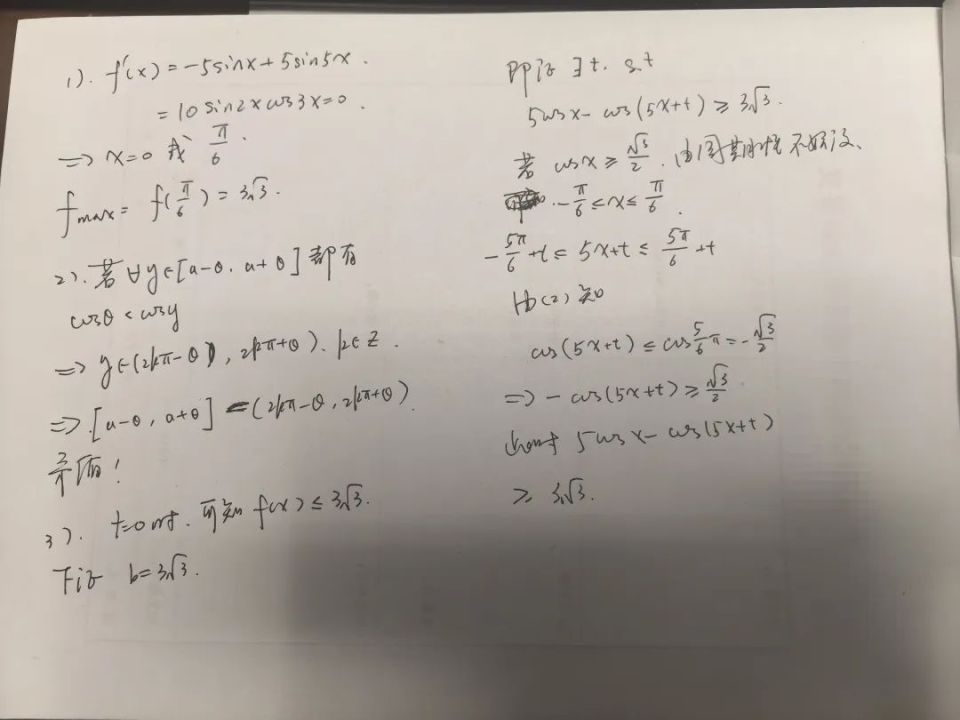 1). f'(x) = -5sinx + 5sin5x.
= 10 sin2x cos3x = 0.
=> x=0 或 π/6.
fmax = f(π/6) = 3√3.
2). 若 ∀y∈[a-θ, a+θ] 都有
cosθ < cosy
=> y∈(2kπ-θ, 2kπ+θ). k∈Z.
=> [a-θ, a+θ] (2kπ-θ, 2kπ+θ)
矛盾!
3). t=0时. 可知 f(x) ≤ 3√3.
下证 b=3√3.
即证 ∃t. s.t
5cosx - cos(5x+t) ≥ 3√3.
若 cosx ≥ √3/2. 由周期性不妨设、
-π/6 ≤ x ≤ π/6.
-5π/6 + t ≤ 5x+t ≤ 5π/6 + t
由(2)知
cos(5x+t) ≤ cos5/6π = -√3/2
=> -cos(5x+t) ≥ √3/2
此时 5cosx - cos(5x+t)
≥ 3√3.